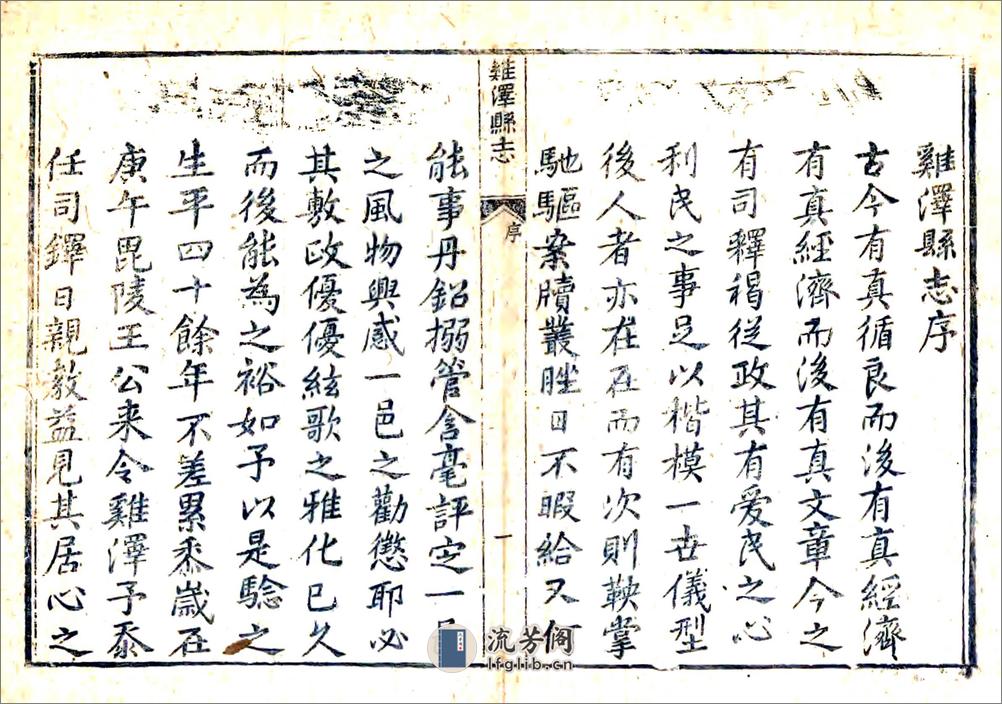 雞澤縣志序
古今有真循良而後有真經濟
有真經濟而後有真文章今之
有司釋褐從政其有爱民之心
利民之事足以楷模一世儀型
後人者亦在在而有次則鞅掌
馳驅案牘叢脞日不暇給又何
雞澤縣志
序
一
能事丹鉛搦管含毫評定一
之風物興感一邑之勸懲耶必
其敷政優優絃歌之雅化已久
而後能為之裕如予以是驗之
生平四十餘年不差累黍歲在
庚午毘陵王公来令雞澤予忝
任司鐸日親教益見其居心之
流芳阁
lfglib.cn